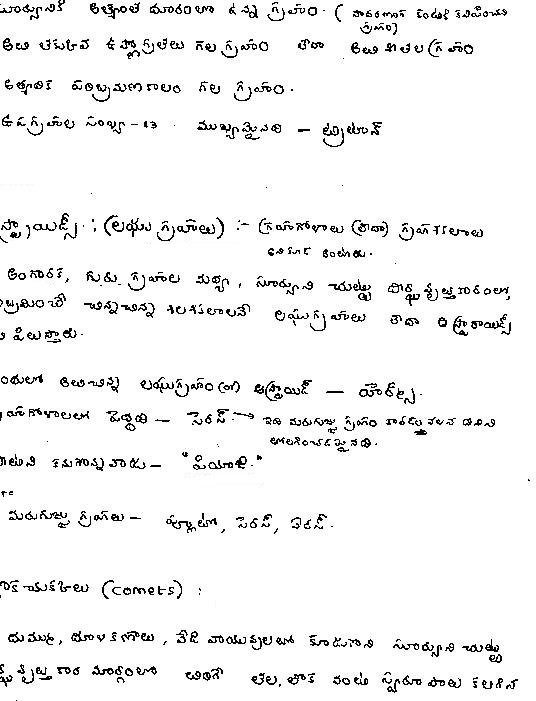 సూర్యునికి అత్యంత దూరంలో ఉన్న గ్రహం. ( సాధారణంగా కంటికి కనిపించని
గ్రహం)
అతి తక్కువ ఉష్ణోగ్రతలు గల గ్రహం లేదా అతి శీతల గ్రహం
అత్యధిక పరిభ్రమణకాలం గల గ్రహం.
ఉపగ్రహాల సంఖ్య - 13 . ముఖ్యమైనది — ట్రిటాన్
స్ట్రాయిడ్స్ : (లఘు గ్రహాలు) :- గ్రహగోళాలు (లేదా) గ్రహశకలాలు
అనికూడ అంటారు.
అంగారక, గురు గ్రహాల మధ్య, సూర్యుని చుట్టు దీర్ఘవృత్తాకారంలో,
భ్రమించే చిన్నచిన్న శిలాశకలాలనే లఘుగ్రహాలు లేదా ఆస్ట్రాయిడ్స్
పిలుస్తారు.
అతిచిన్న లఘుగ్రహం (or) ఆస్ట్రాయిడ్ —
గ్రహగోళాలలో పెద్దది — సెరస్. → ఇది మరుగుజ్జు గ్రహం కావడం వలన దీనిని
తొలగించడమైనది.
కనుగొన్నవాడు — "పియాజి."
మరుగుజ్జు గ్రహాలు — ప్లూటో, సెరస్, ఏరిస్.
తోకచుక్కలు (comets) :
దుమ్ము, ధూళికణాలు, వేడి వాయువులతో కూడుకొని సూర్యుని చుట్టు
వృత్తాకార మార్గంలో తిరిగే తల, తోక వంటి స్వరూపాలు కలిగిన